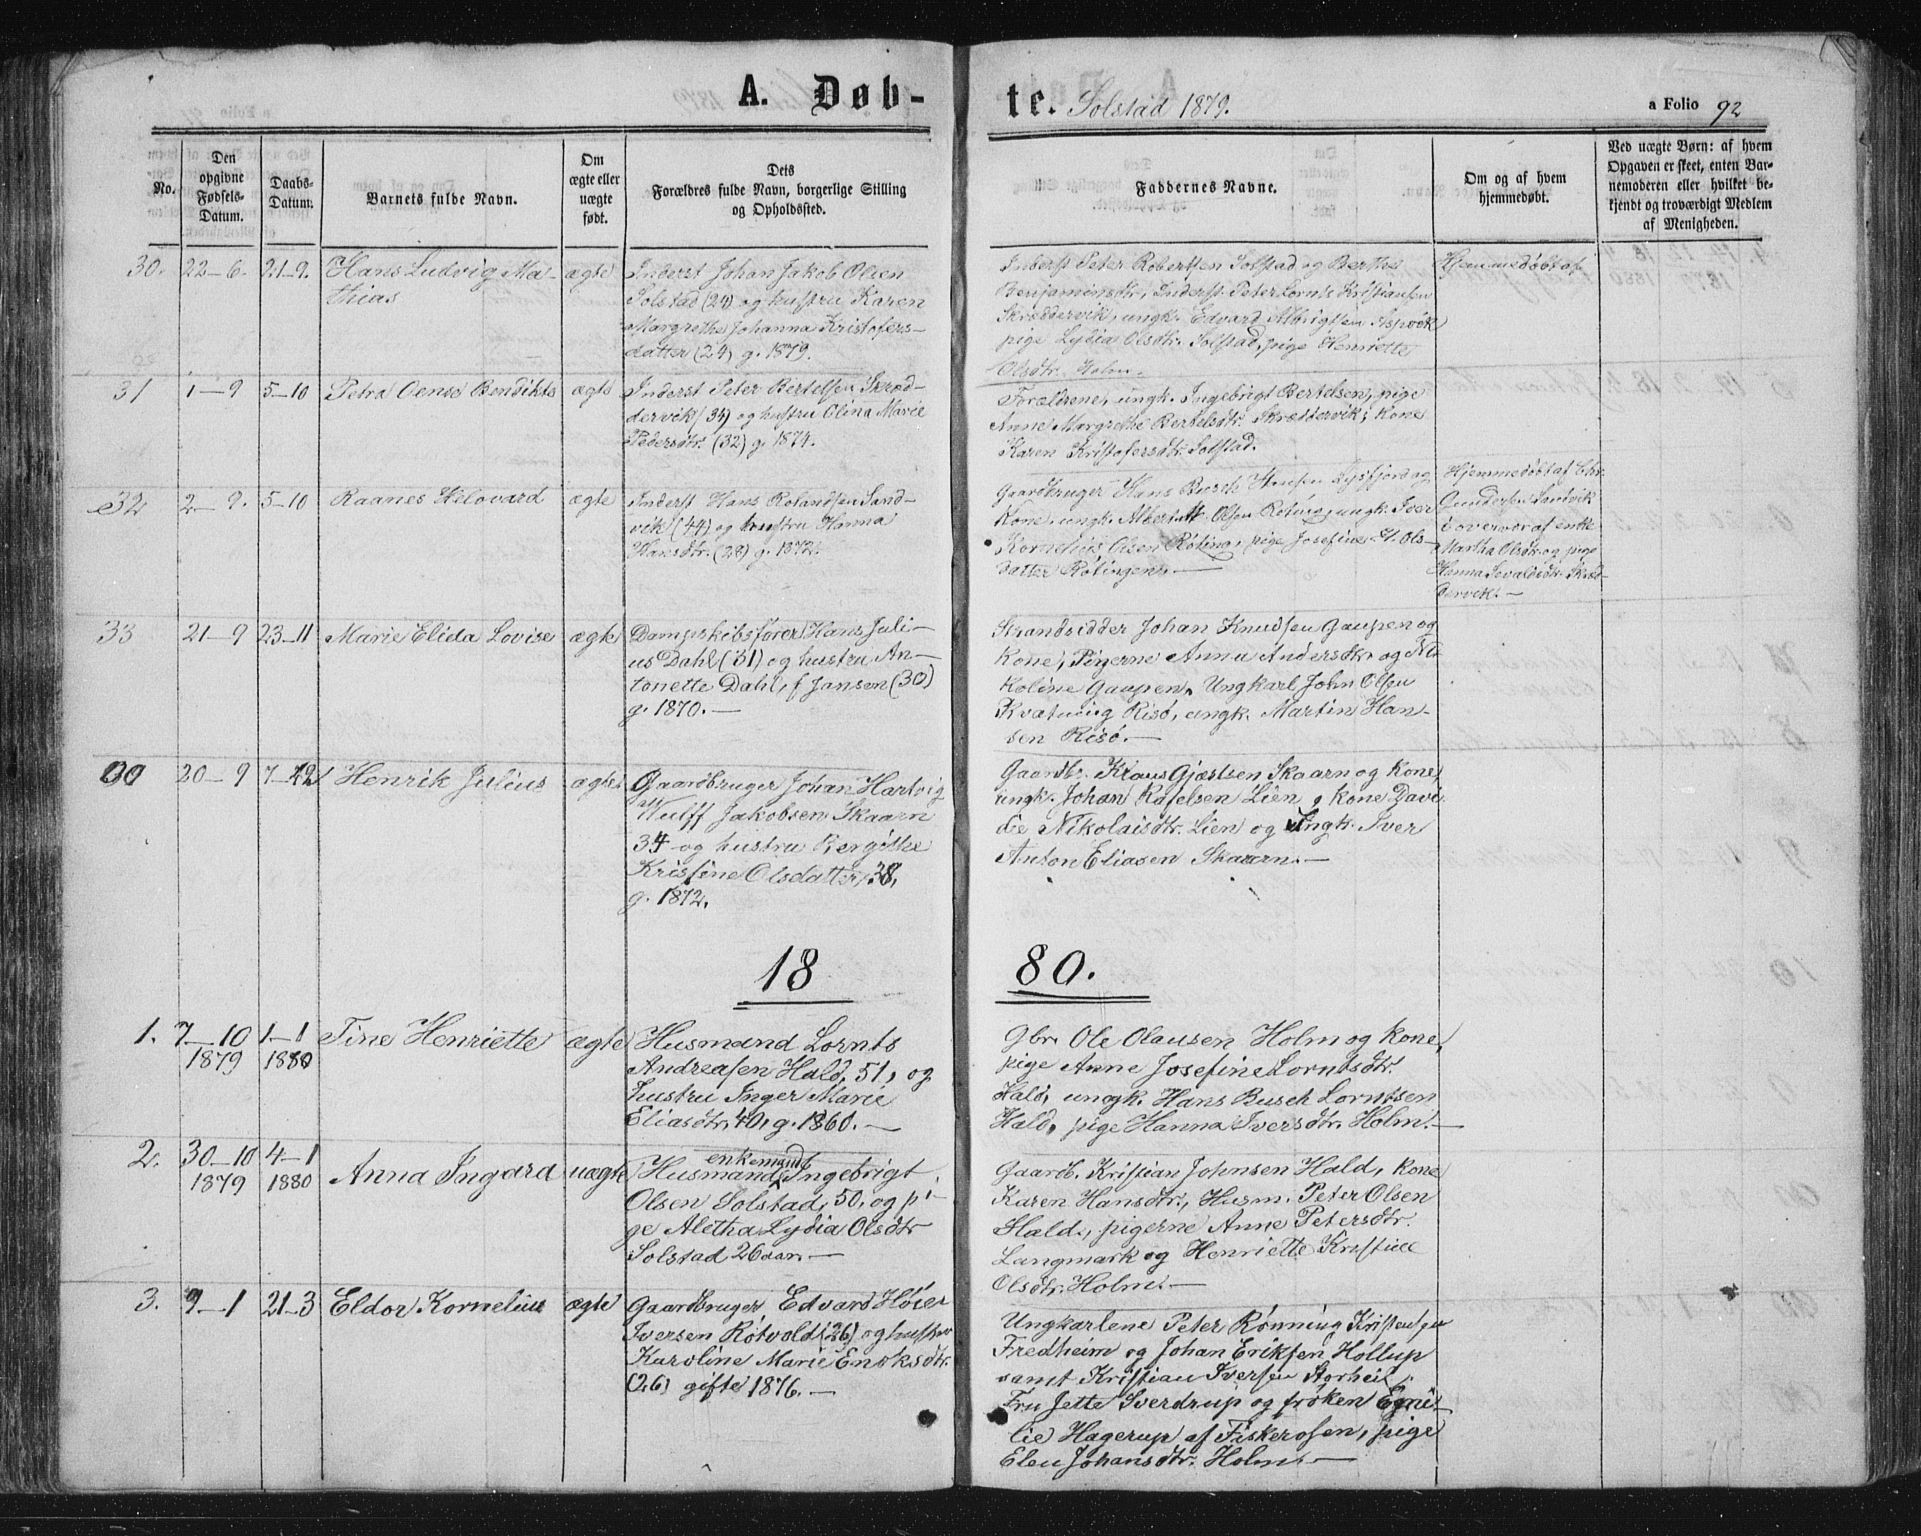 A. Døb-
te. Solstad 1879.
a Folio 92
No.
Den
opgivne
Fødsels-
Datum.
Daabs-
Datum.
Barnets fulde Navn.
Om
ægte eller
uægte
født.
Dets
Forældres fulde Navn, borgerlige Stilling
og Opholdssted.
Faddernes Navne.
Om og af hvem
hjemmedøbt.
Ved uægte Børn: af hvem
Opgaven er skeet, enten Bar-
nemoderen eller hvilket be-
kjendt og troværdigt Medlem
af Menigheden.
30. 22-6. 21-9. Hans Ludvig Ma-
thias
ægte
Inderst Johan Jakob Olsen
Solstad (24) og hustru Karen
Margrethe Johanna Kristofers-
datter (24) g. 1879.
Inderst Peter Robertsen Solstad og Berthe
Benjaminsdtr, Inderst Peter Lornts Kristiansen
Skræddervik, ungk. Edvard Albrigtsen Aspvik
pige Lydia Olsdtr. Solstad, pige Henriette
Olsdtr. Holm.
Hjemmedøbt af
31 1-9 5-10 Petra Oense Bendikte ægte
Inderst Peter Bertelsen Skræd-
dervik (34) og hustru Olina Marie
Pedersdtr. (32) g. 1874.
Forældrene, ungk. Ingebrigt Bertelsen, pige
Anne Margrethe Bertelsdtr. Skræddervik, Kone
Karen Kristofersdtr. Solstad.
32 2-9. 5-10 Raanes Hilovard ægte
Inderst Hans Rolandsen Sand-
vik (44) og hustru Hanna
Hansdtr. (28) g. 1872.
Gaardbruger Hans Busch Hansen Lysfjord og
Kone, ungk. Albert Olsen Røting, ungk. Iver
Kornelius Olsen Røting, pige Josefine H. Ols-
datter Røtingen. —
Hjemmedøbt af Chr.
Gundersen Sandvik
i overvær af enke
Martha Olsdtr. og pige
Hanna Sevaldsdtr. Skræd-
dervik. —
33 21-9 23-11 Marie Elida Lovise ægte
Dampskibsfører Hans Juli-
us Dahl (31) og hustru An-
tonette Dahl, f Jansen (30)
g. 1870. —
Strandsidder Johan Knudsen Gaupen og
Kone, Pigerne Anna Andersdtr. og Ni-
koline Gaupen, Ungkarl John Olsen
Kvætning Risø, ungk. Martin Han-
sen Risø. —
20-9 7-12 Henrik Julius ægte
Gaardbruger Johan Hartvig
Wulff Jakobsen Skaarn
34 og hustru Bergithe
Kristine Olsdatter, 38,
g. 1872.
Gaardbr. Klaus Gjæstsen Skaarn og Kone,
ungk. Johan Rafelsen Lien, Kone Davi-
die Nikolaisdtr. Lien og Ungk. Iver
Anton Eliasen Skaarn. —
18 80.
1. 7-10 1-1 Tine Henriette ægte
1879 1880
Husmand Lornts
Andreasen Hald, 51, og
hustru Inger Marie
Eliasdtr. 40, g. 1860. —
Gbr. Ole Olausen Holm og kone,
pige Anne Josefine Lorntsdtr.
Hald, ungk. Hans Busch Lorntsen
Hald, pige Hanna Iversdtr. Holm. —
2. 30-10 4-1 Anna Ingard uægte
1879 1880
enkemand
Husmand Ingebrigt
Olsen Solstad, 50, og pi-
ge Aletha Lydia Olsdtr
Solstad 26 aar. —
Gaardb. Kristian Johnsen Hald, kone
Karen Hansdtr., Husm. Peter Olsen
Hald, pigerne Anne Petersdtr.
Langmark og Henriette Kristine
Olsdtr. Holm. —
3. 9-1 21-3 Eldor Kornelius ægte
Gaardbruger Edvard Høier
Iversen Røtvold (26) og hustru
Karoline Marie Enoksdtr.
(26) gifte 1876. —
Ungkarlene Peter Rønning Kristensen
Fredheim og Johan Eriksen Hollup
samt Kristian Iversen Storheil,
Fru Jette Sverdrup og frøken Emi-
lie Hagerup af Fiskerosen, pige
Elen Johansdtr. Holm. —